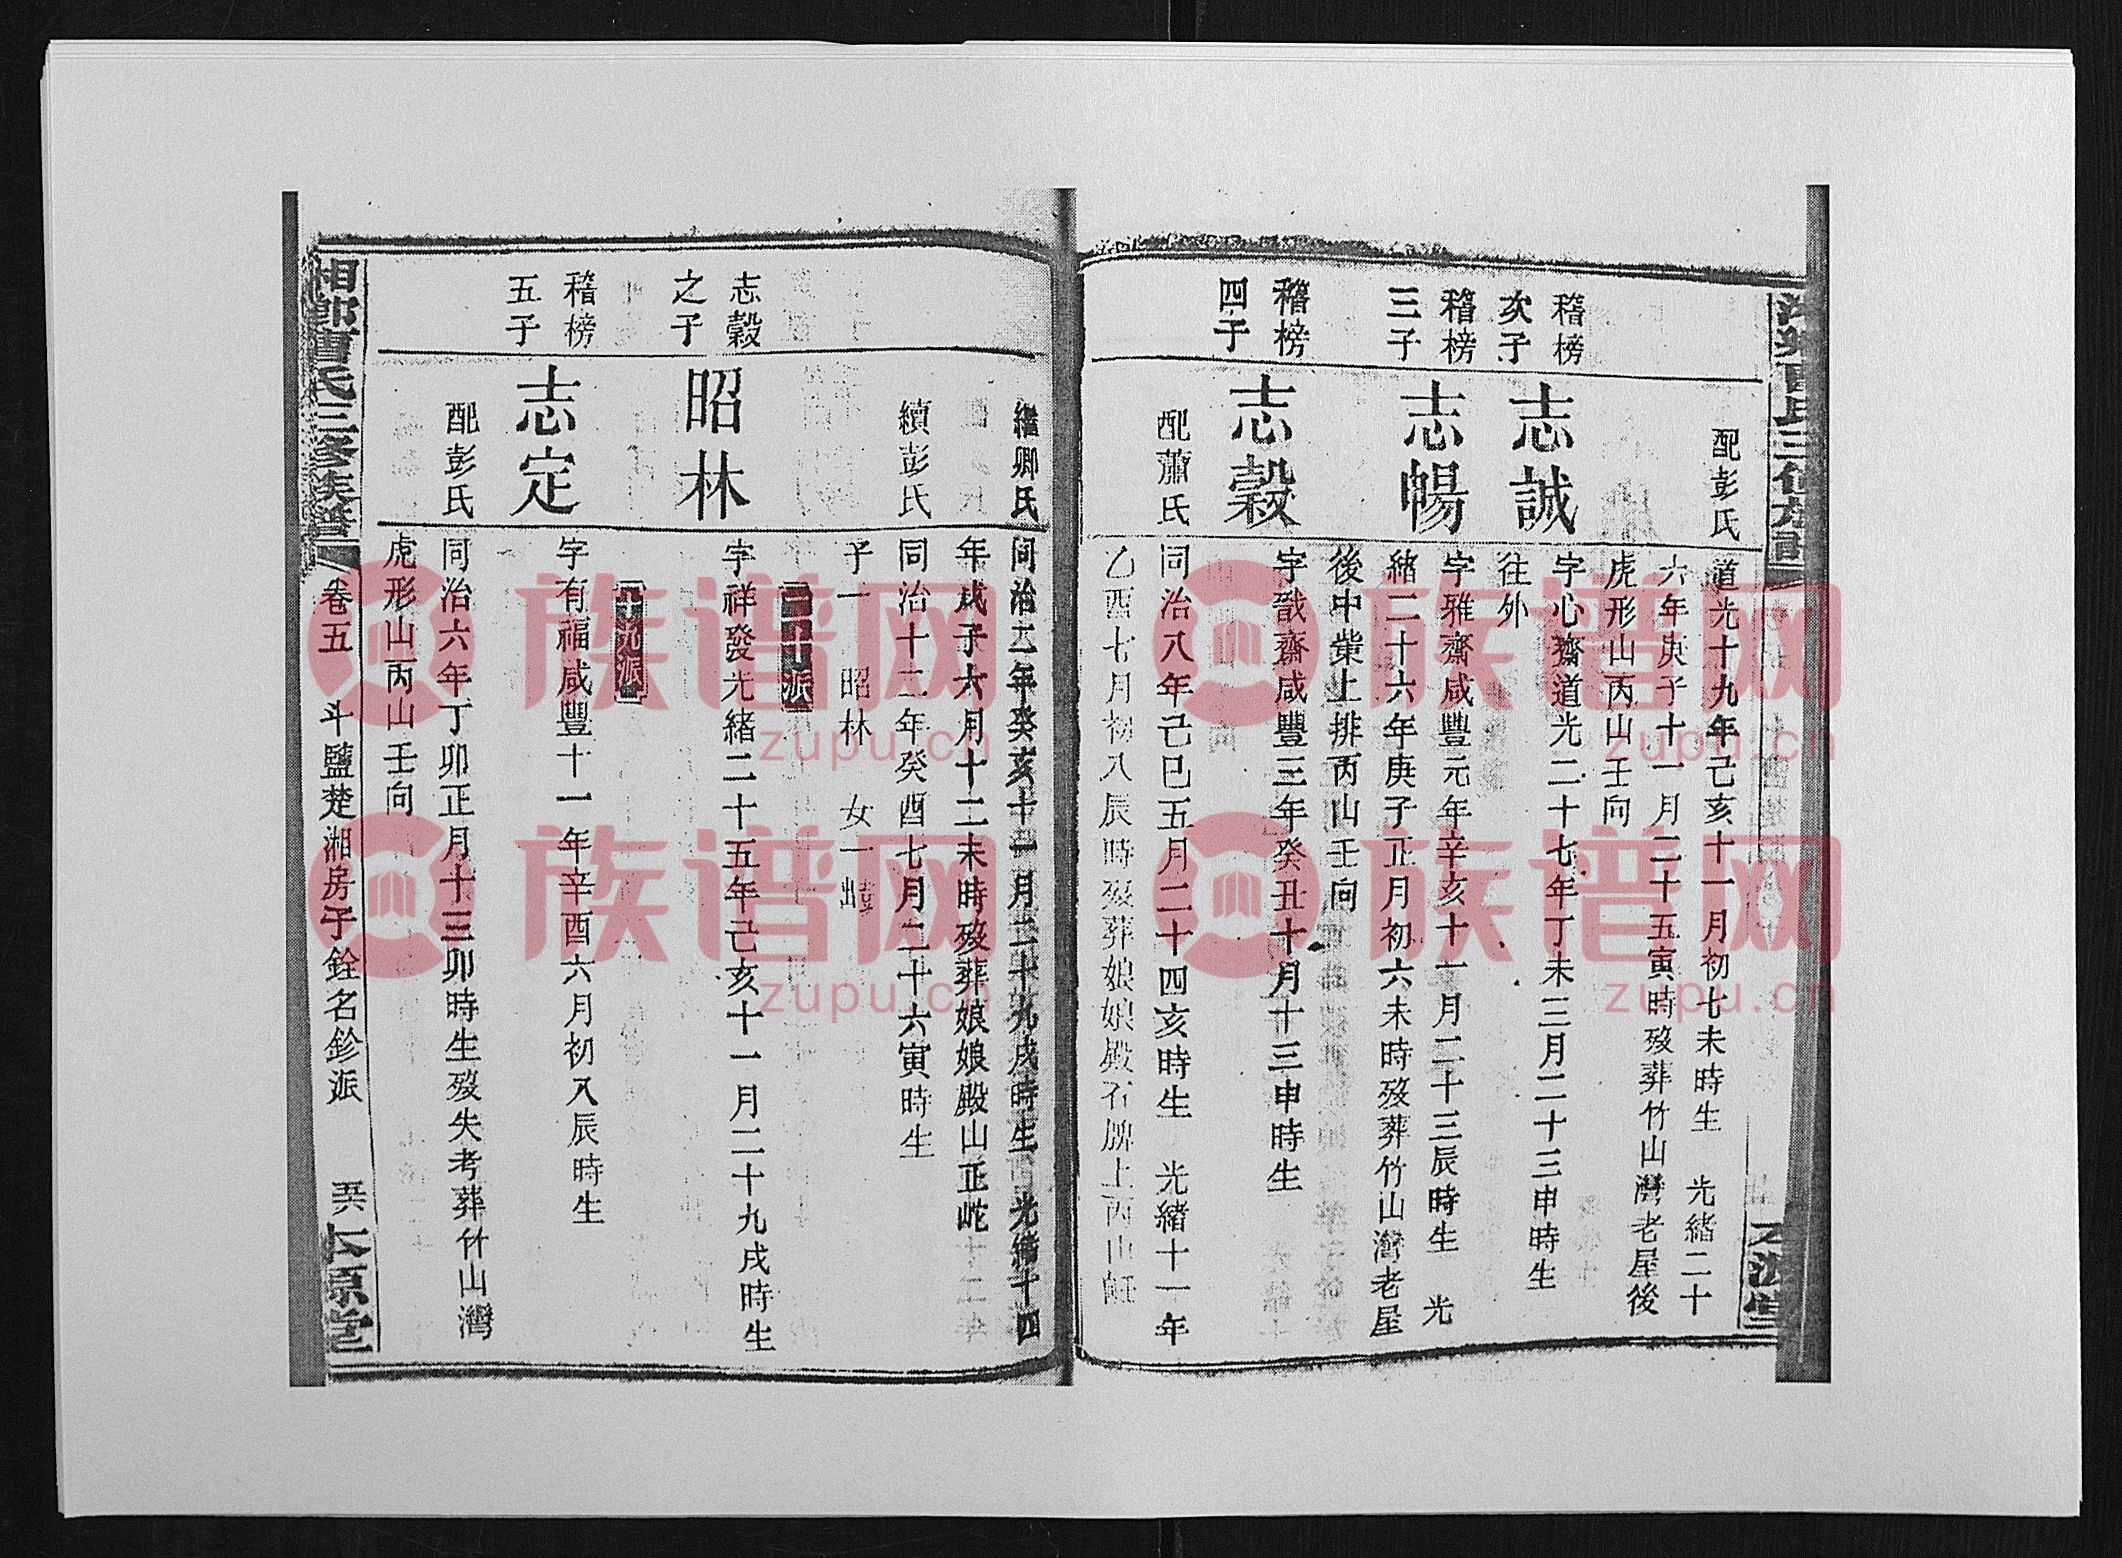 配彭氏
道光十九年己亥十一月初七未時生　光緒二十
六年庚子十一月二十五寅時歿葬竹山灣老屋後
虎形山丙山壬向
稽榜
次子
志誠
字心齋道光二十七年丁未三月二十三申時生
往外
稽榜
三子
志暢
字雅齋咸豐元年辛亥十一月二十三辰時生　光
緒二十六年庚子正月初六未時歿葬竹山灣老屋
後中葉上排丙山壬向
稽榜
四子
志穀
字戩齋咸豐三年癸丑十月十三申時生
配蕭氏
同治八年己巳五月二十四亥時生　光緒十一年
乙酉七月初八辰時歿葬娘娘殿石牌上丙山
繼卿氏
同治二年癸亥十一月二十九戌時生　光緒十四
年戊子六月十二未時歿葬娘娘殿山正屹
續彭氏
同治十二年癸酉七月二十六寅時生
子一　昭林　女一
志穀
之子
昭林
字祥發光緒二十五年己亥十一月二十九戌時生
稽榜
五子
志定
字有福咸豐十一年辛酉六月初八辰時生
配彭氏
同治六年丁卯正月十三卯時生歿失考葬竹山灣
虎形山丙山壬向
湘鄉曹氏三修族譜　卷五　斗鹽楚湘房子銓名鉁派　五六　本源堂
族谱网
zupu.cn
族谱网
zupu.cn
族谱网
zupu.cn
族谱网
zupu.cn